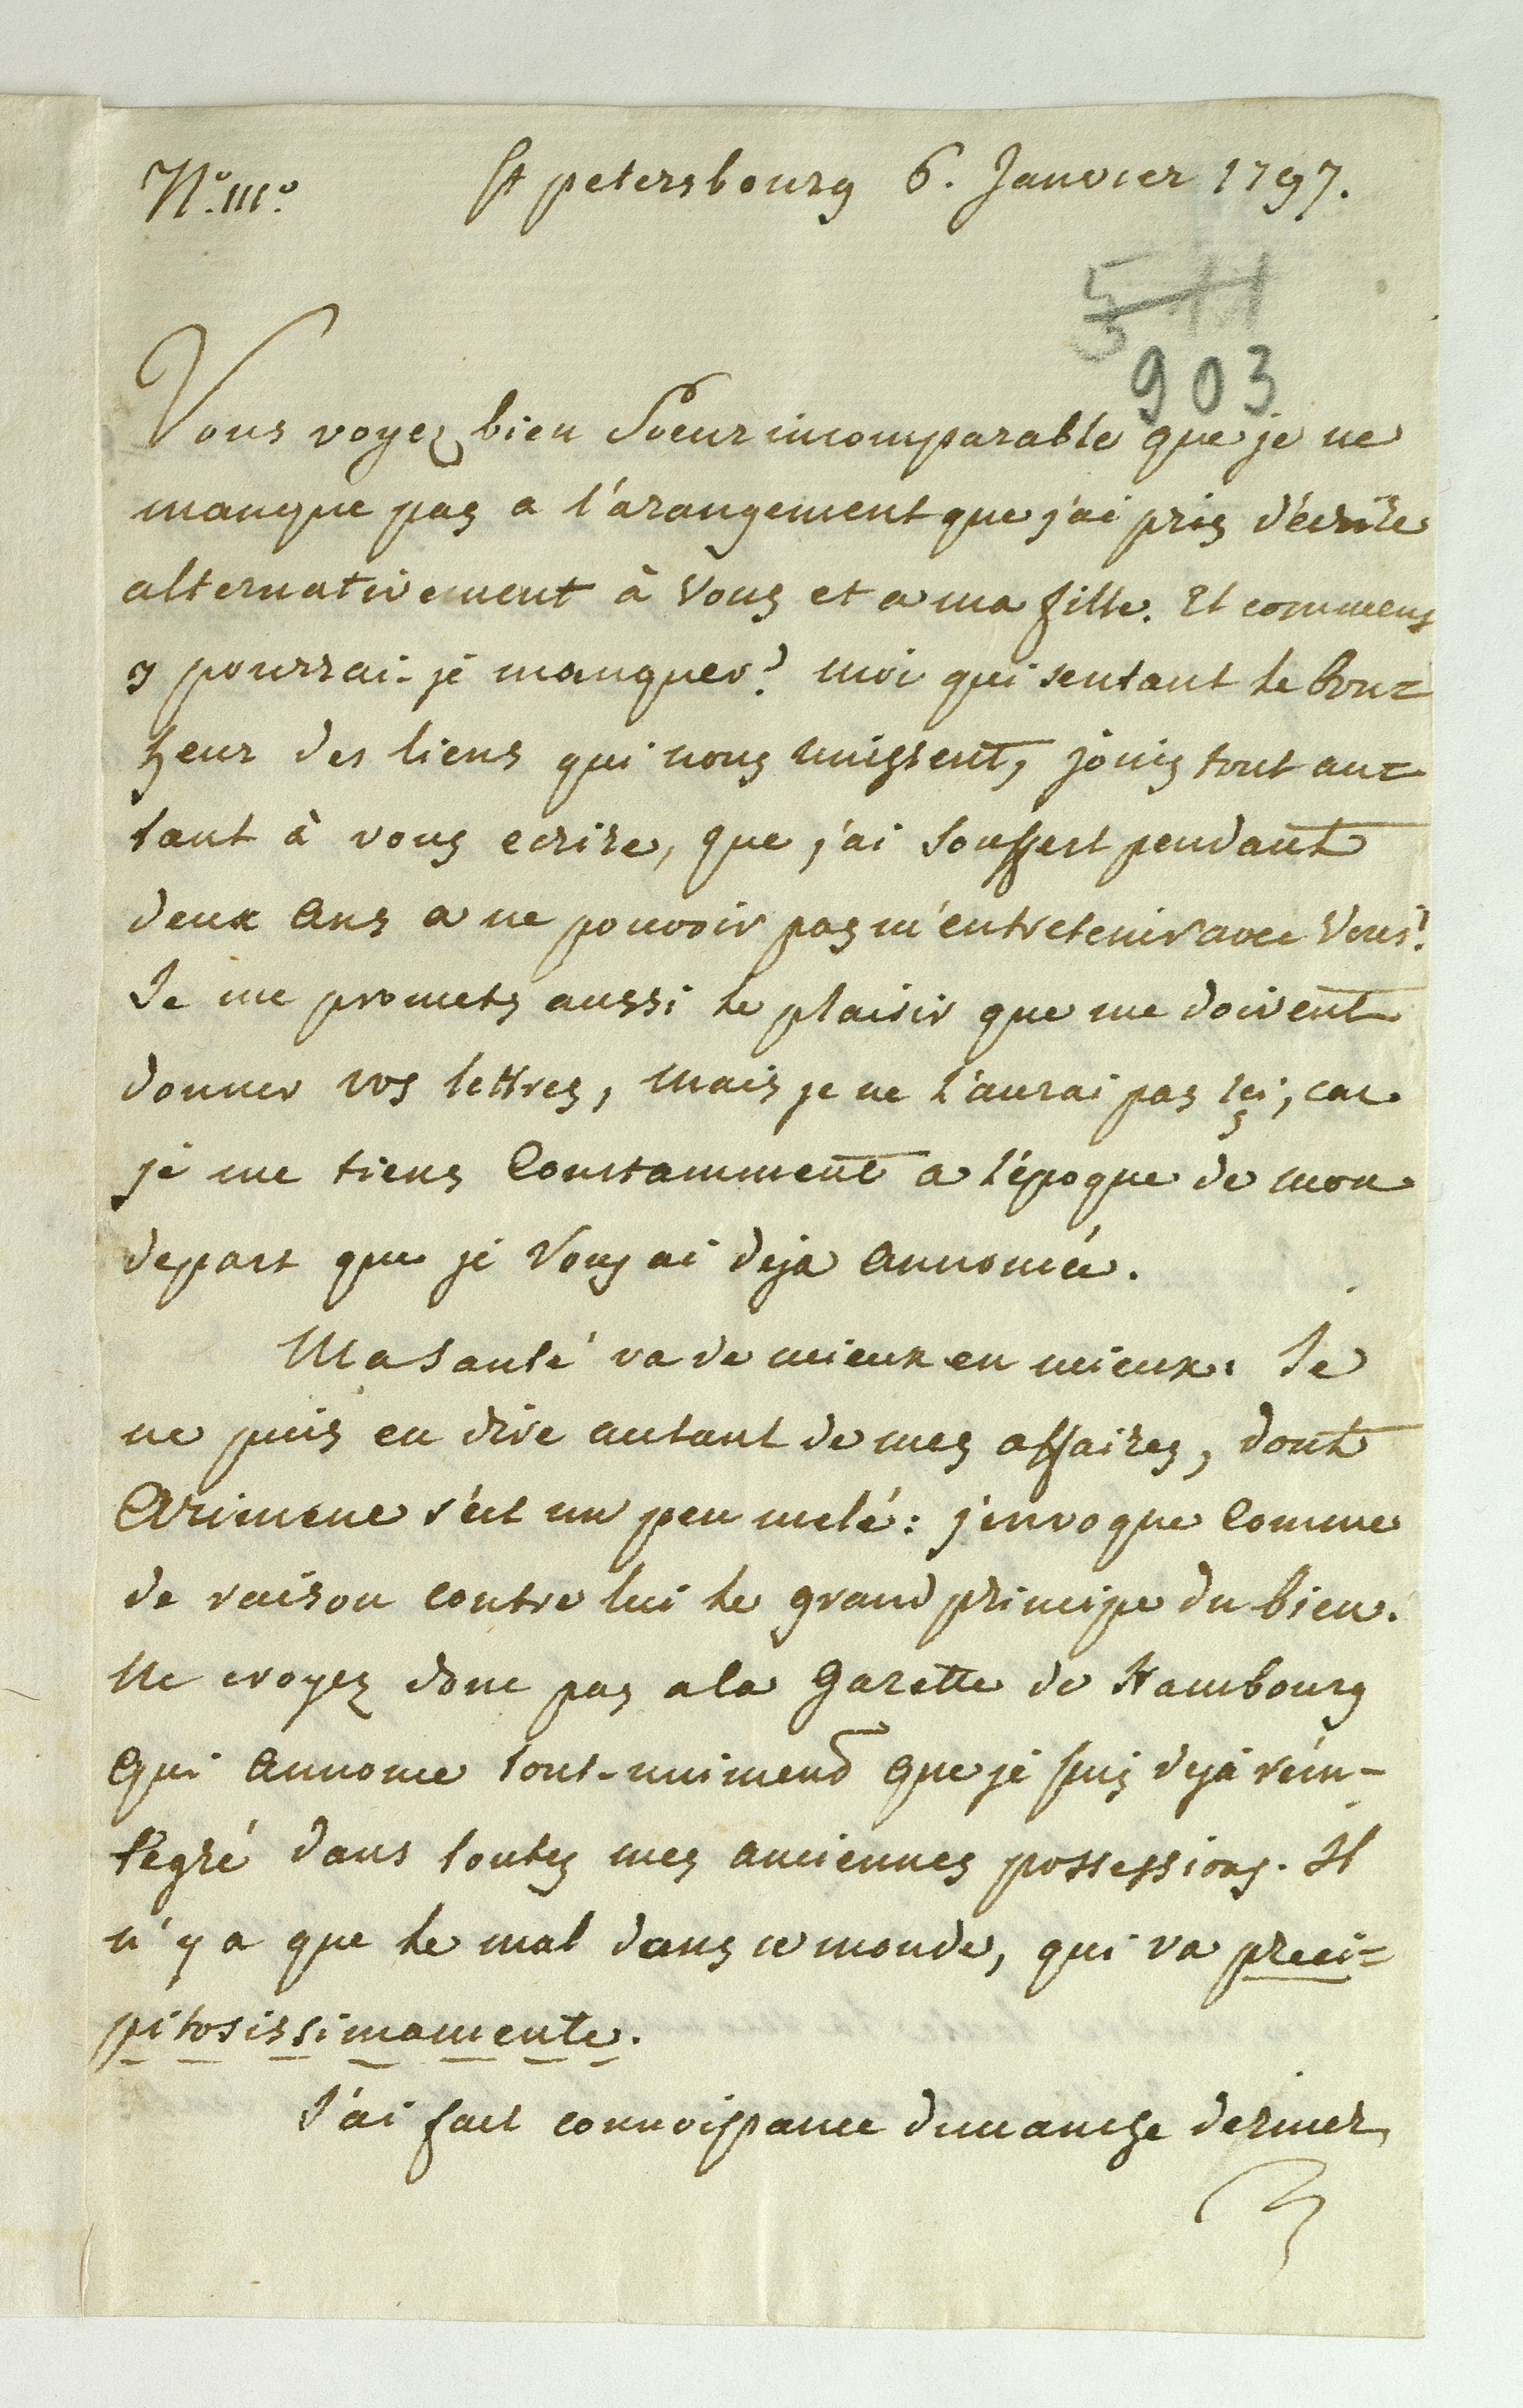 N.º III.º St petersbourg 6. Janvier 1797.
903
Vous voyez bien Soeur incomparable que je ne
manque pas a l'arangement que j'ai pris d'écrire
alternativement à Vous et a ma fille. Et commens
y pourrai-je manquer? moi qui sentant le bon=
heur des liens qui nous unissent, jouis tout au=
tant à vous ecrire, que j'ai souffert pendant
deux Ans a ne pouvoir pas m'entretenir avec Vous?
Je me promets aussi le plaisir que me doivent
donner vos lettres, mais je ne l'aurai pas ici, car
je me tiens Constamment a l'époque de mon
depart que je Vous ai deja Annoncé.
Ma Santé va de mieux en mieux. Je
ne puis en dire autant de mes affaires, dont
Arimene s'est un peu melé: j'invoque Comme
de raison contre lui le grand principe du bien.
Ne croyez donc pas a la Gazette de Hambourg
qui Annonce tout-uniment que je suis deja réin-
tegré dans toutes mes anciennes possessions. Il
n'y a que le mal dans ce monde, qui va preci=
pitosissimamente.
J'ai fait connoissance dimanche dernier